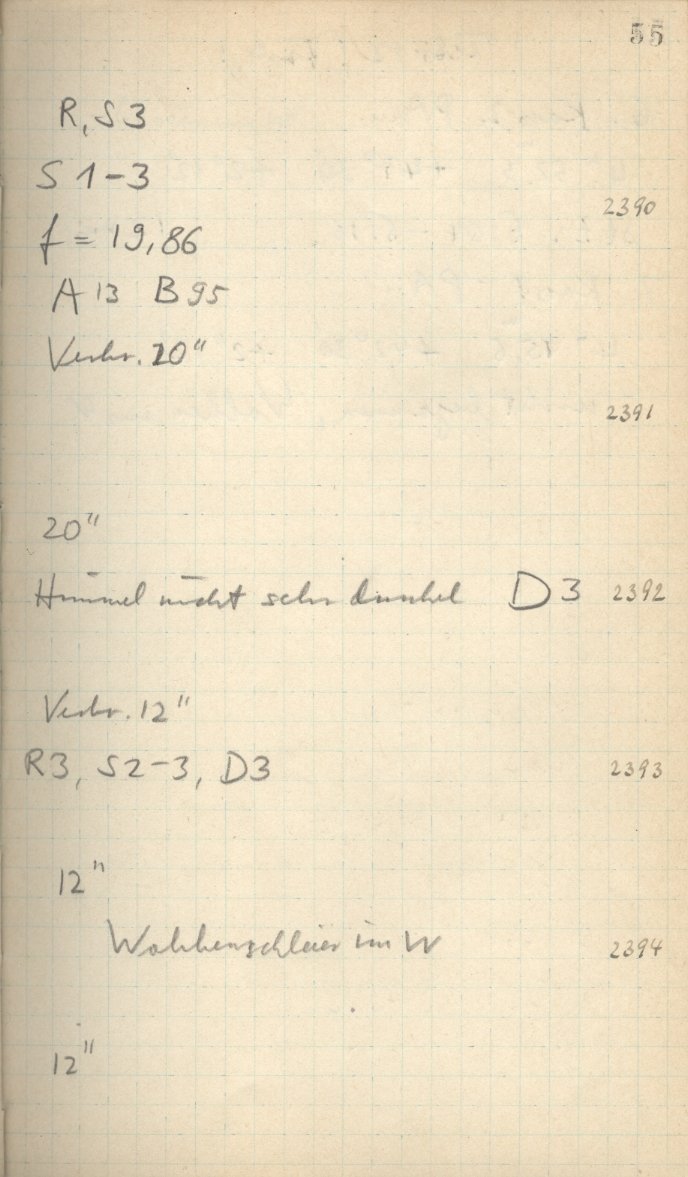 55
R, S 3
S 1-3
2390
f = 19,86
A 13 B 95
Verbr. 20"
2391
20"
Himmel nicht sehr dunkel D 3 2392
Verbr. 12"
R3, S2-3, D3 2393
12"
Wolkenschleier im W 2394
12"